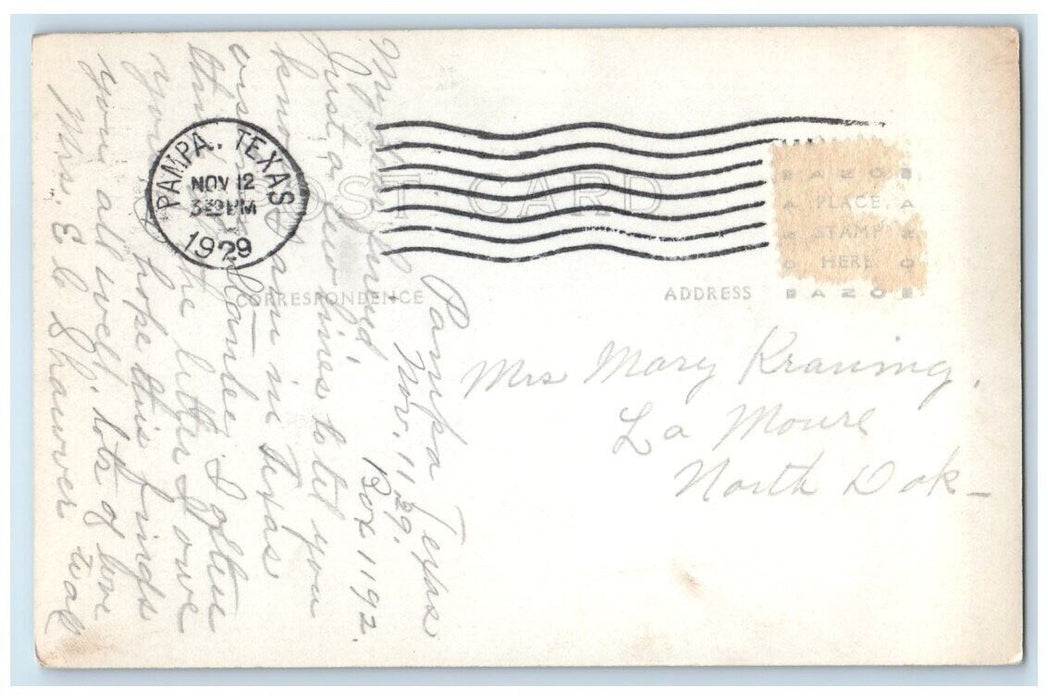 PAMPA, TEXAS
NOV 12
3 30 PM
1929
POST CARD
CORRESPONDENCE
ADDRESS
PLACE
STAMP
HERE
AZO
Pampa Texas
Nov. 11 29.
Box 1192.
My dear friend
Just a few lines to let you
know I am in Texas
Stanley. I often
the letter I owe
you hope this finds
you all well. lots of love
Mrs. E C Shawver
Mrs Mary Krauing.
La Moure
North Dak